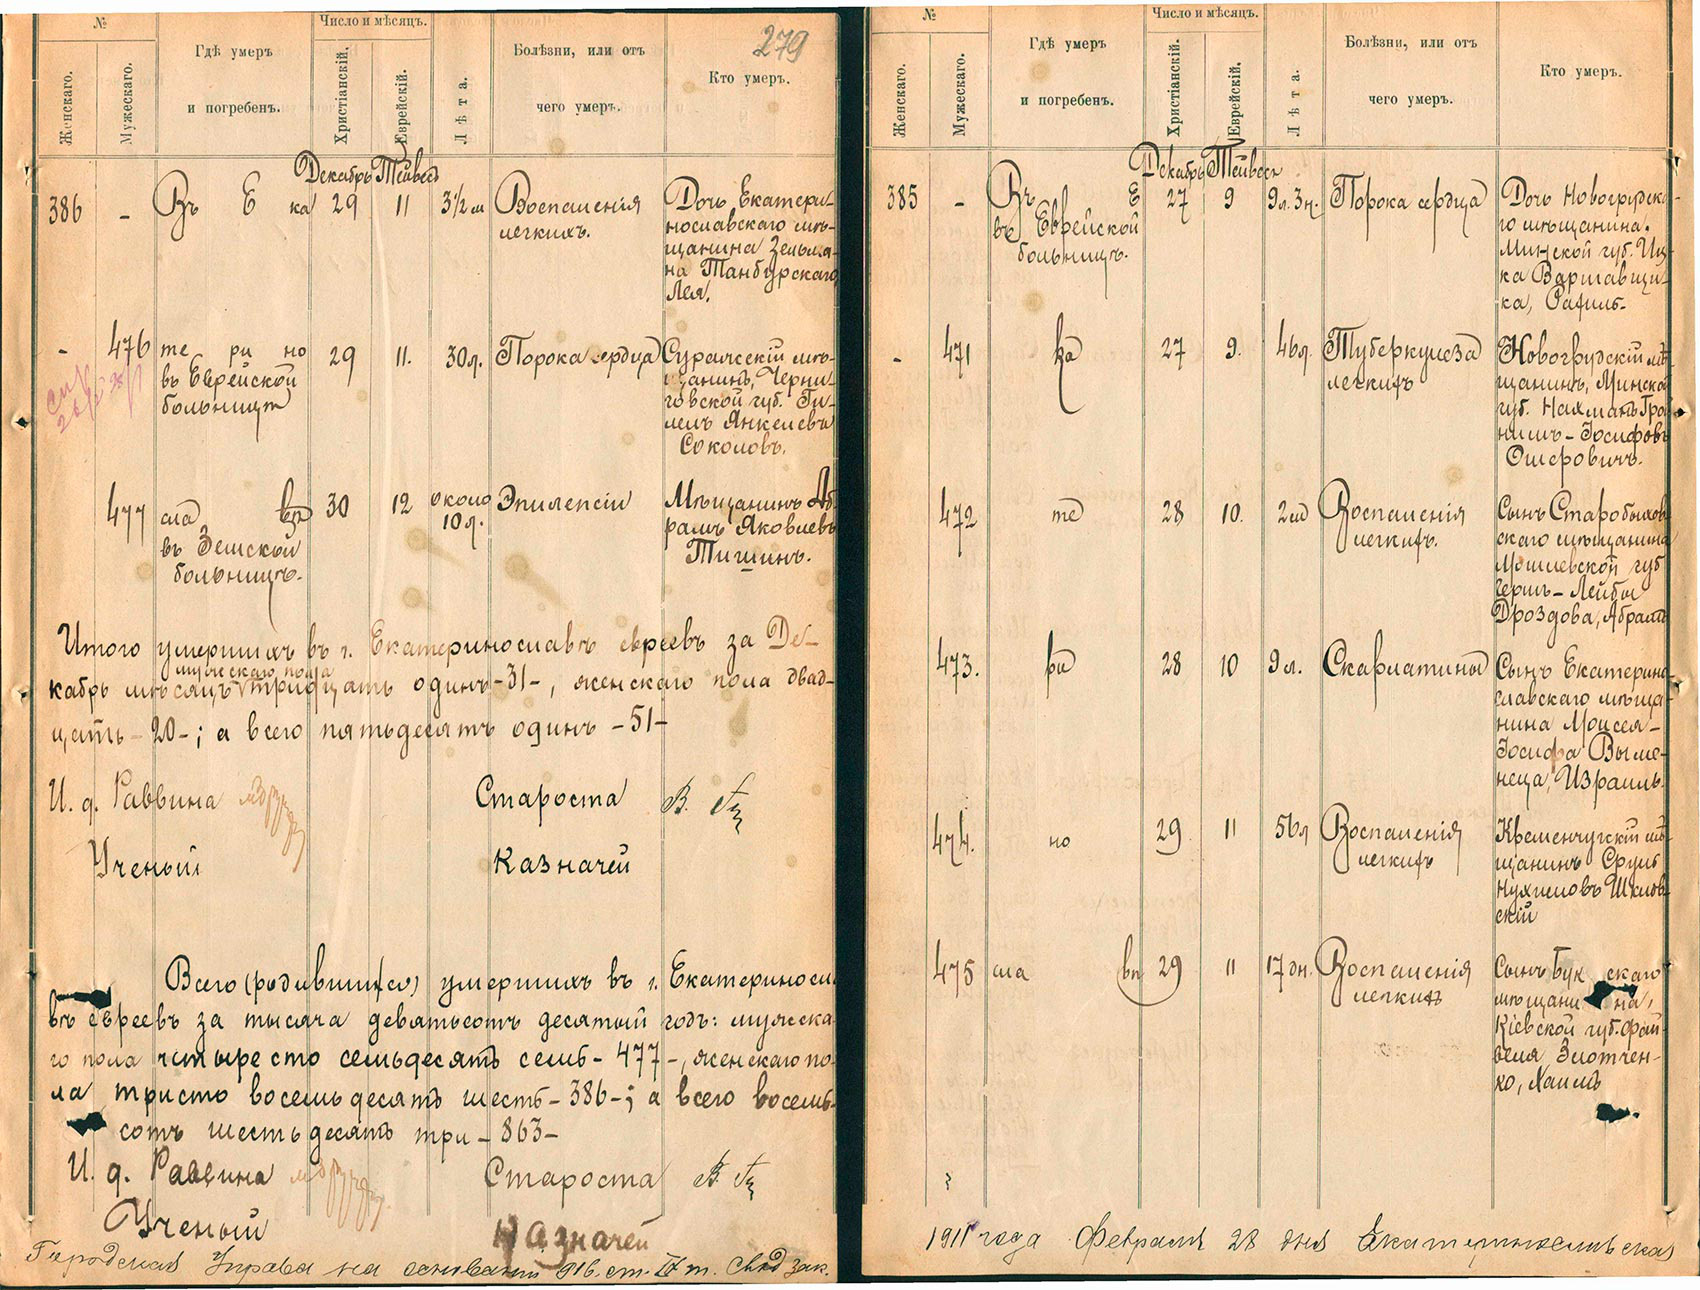 №
Число и мѣсяцъ.
Женскаго.
Мужескаго.
Гдѣ умеръ
и погребенъ.
Христіанскій.
Еврейскій.
Лѣта.
Болѣзни, или отъ
чего умеръ.
279
Кто умеръ.
Декабрь Тейвесъ
386 - Въ Е ка 29 11 3½ м Воспаленія
легкихъ.
Дочь Екатери-
нославскаго мѣ-
щанина Зельма-
на Танбурскаго
Лея.
- 476 те ри но 29 11. 30 л. Порока сердца
въ Еврейской
больницѣ
Суражскій мѣ-
щанинъ, Черни-
говской губ. Ги-
лель Янкелевъ
Соколовъ.
477 сла вѣ 30 12 около
10 л.
Эпилепсіи
въ Земской
больницѣ.
Мѣщанинъ Аб-
рамъ Яковлевъ
Тишинъ.
Итого умершихъ въ г. Екатеринославѣ евреевъ за Де-
мужескаго пола
кабрь мѣсяцъ тридцать одинъ -31-, женскаго пола двад-
цать - 20 -; а всего пятьдесятъ одинъ - 51 -
И. д. Раввина
Староста
Ученый
Казначей
Всего (родившихся) умершихъ въ г. Екатериносла
вѣ евреевъ за тысяча девятьсотъ десятый годъ: мужска-
го пола четыресто семьдесятъ семь - 477 -, женскаго по-
ла тристо восемьдесятъ шесть - 386 -; а всего восемь-
сотъ шестьдесятъ три - 863 -
И. д. Раввина
Староста
Ученый
Казначей
Городская Управа на основаніи 916. ст. IX т. Свод Зак.
№
Число и мѣсяцъ.
Женскаго.
Мужескаго.
Гдѣ умеръ
и погребенъ.
Христіанскій.
Еврейскій.
Лѣта.
Болѣзни, или отъ
чего умеръ.
Кто умеръ.
Декабрь Тейвесъ
385 - Въ Е 27 9 9 л. 3 м. Порока сердца
въ Еврейской
больницѣ.
Дочь Новогрудска-
го мѣщанина.
Минской губ. Иц-
ка Варшавщи-
ка, Рафиль.
- 471 ка 27 9. 46 л. Туберкулеза
легкихъ
Новогрудскій мѣ-
щанинъ, Минской
губ. Нахманъ Гро-
нимъ - Іосифовъ
Ошеровичъ.
472 те 28 10. 2 м Воспаленія
легкихъ.
Сынъ Старобыхов-
скаго мѣщанина
Могилевской губ
Герша - Лейбы
Дроздова, Абрамъ
473. ри 28 10 9 л. Скарлатины
Сынъ Екатерино-
славскаго мѣща-
нина Моисея -
Іосифа Выме-
неца, Израиль.
474. но 29 11 56 л Воспаленія
легкихъ
Кременчугскій мѣ-
щанинъ Сруль
Нухимовъ Шклов-
скій
475 сла вѣ 29 11 17 дн. Воспаленія
легкихъ
Сынъ скаго
мѣщанина,
Кіевской губ. Фай-
веля Злотчен-
ко, Хаимъ
1911 года Февраля 28 дня Екатеринославская